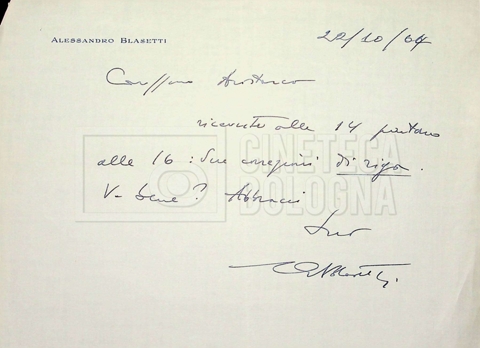 ALESSANDRO BLASETTI
22/10/64
Carissimo Aristarco
ricevute alle 14 partono
alle 16: due correzioni di riga.
Va bene? Abbracci
Suo
ABlasetti
CINETECA
BOLOGNA